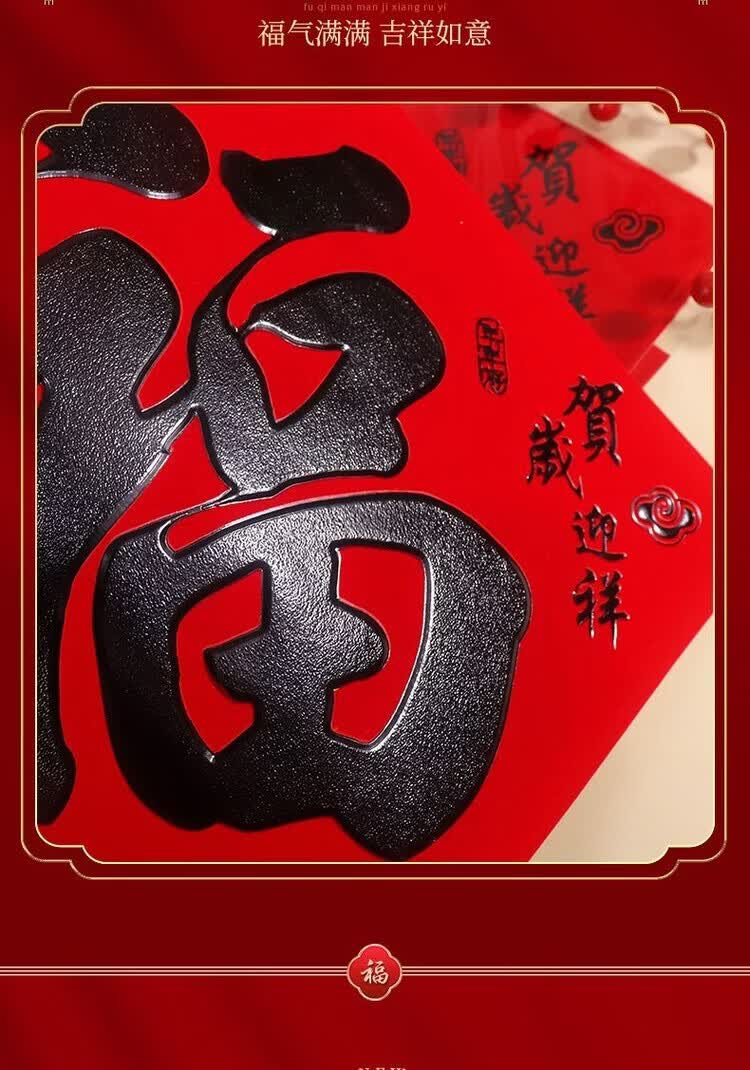 fu qi man man ji xiang ru yi
福气满满 吉祥如意
福
賀歲迎
賀歲迎祥
福